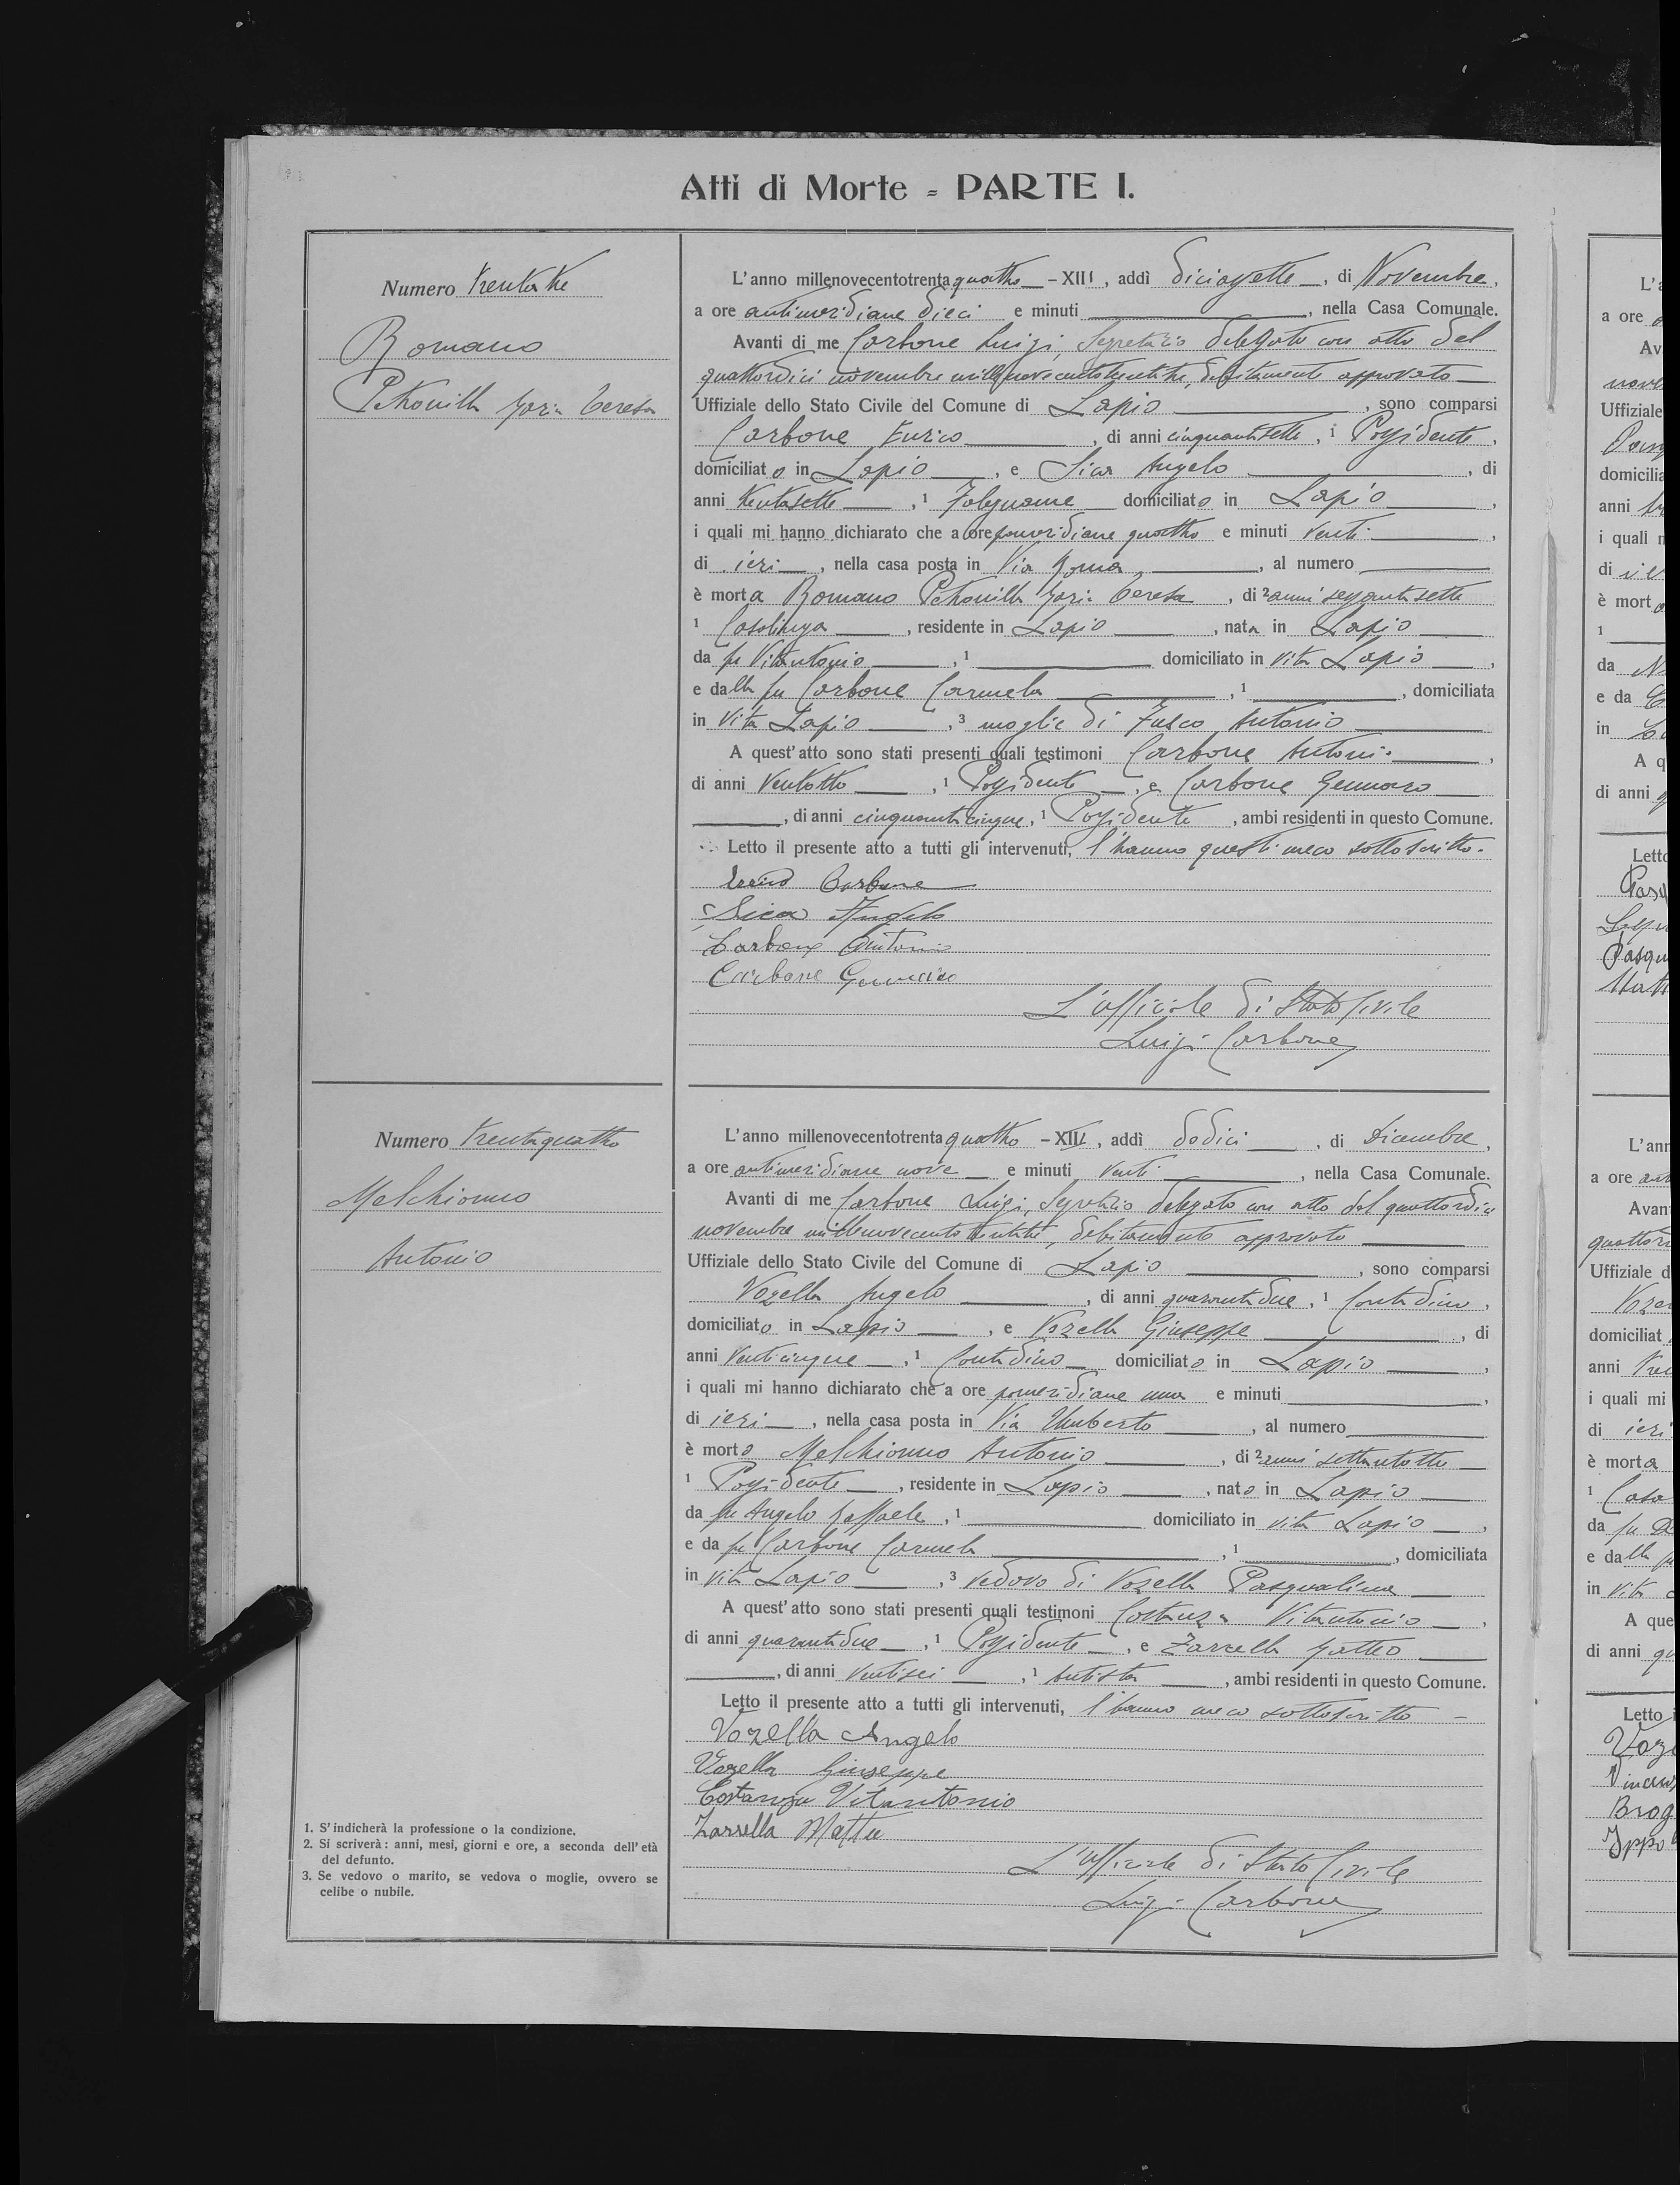 Atti di Morte = PARTE I.
Numero trentatre
Romano
Petronilla Maria Teresa
L'anno millenovecentotrentaquattro - XIII, addì diciassette, di Novembre,
a ore antimeridiane dieci e minuti, nella Casa Comunale.
Avanti di me Carbone Luigi, Segretario delegato con atto del
quattordici novembre millenovecentotrentatre, debitamente approvato
Uffiziale dello Stato Civile del Comune di Lapio, sono comparsi
Carbone Enrico, di anni cinquantasette, 1 Possidente,
domiciliato in Lapio, e Sica Angelo, di
anni trentasette, 1 Falegname domiciliato in Lapio,
i quali mi hanno dichiarato che a ore pomeridiane quattro e minuti venti,
di ieri, nella casa posta in Via Roma, al numero
è morta Romano Petronilla Maria Teresa, di 2 anni sessantasette
1 Casalinga, residente in Lapio, nata in Lapio
da fu Vitantonio, 1 domiciliato in vita Lapio,
e dalla fu Carbone Carmela, 1, domiciliata
in vita Lapio, 3 moglie di Fusco Antonio
A quest'atto sono stati presenti quali testimoni Carbone Antonio,
di anni ventotto, 1 Possidente, e Carbone Gennaro
, di anni cinquantacinque, 1 Possidente, ambi residenti in questo Comune.
Letto il presente atto a tutti gli intervenuti, l'hanno questi meco sottoscritto.
Carbone
Sica Angelo
Carbone Antonio
Carbone Gennaro
L'ufficiale di Stato Civile
Luigi Carbone
Numero trentaquattro
Melchionno
Antonio
L'anno millenovecentotrentaquattro - XIII, addì dodici, di Dicembre,
a ore antimeridiane nove e minuti venti, nella Casa Comunale.
Avanti di me Carbone Luigi, Segretario delegato con atto del quattordici
novembre millenovecentotrentatre, debitamente approvato
Uffiziale dello Stato Civile del Comune di Lapio, sono comparsi
Vozella Angelo, di anni quarantadue, 1 Contadino,
domiciliato in Lapio, e Vozella Giuseppe, di
anni venticinque, 1 Contadino domiciliato in Lapio,
i quali mi hanno dichiarato che a ore pomeridiane una e minuti,
di ieri, nella casa posta in Via Umberto, al numero
è morto Melchionno Antonio, di 2 anni settantotto
1 Possidente, residente in Lapio, nato in Lapio
da fu Angelo Raffaele, 1 domiciliato in vita Lapio,
e da fu Carbone Carmela, 1, domiciliata
in vita Lapio, 3 vedovo di Vozella Pasqualina
A quest'atto sono stati presenti quali testimoni Costanza Vitantonio,
di anni quarantadue, 1 Possidente, e Zarrella Matteo
, di anni ventisei, 1 Autista, ambi residenti in questo Comune.
Letto il presente atto a tutti gli intervenuti, l'hanno meco sottoscritto
Vozella Angelo
Vozella Giuseppe
Costanza Vitantonio
Zarrella Matteo
L'ufficiale di Stato Civile
Luigi Carbone
1. S'indicherà la professione o la condizione.
2. Si scriverà: anni, mesi, giorni e ore, a seconda dell'età
del defunto.
3. Se vedovo o marito, se vedova o moglie, ovvero se
celibe o nubile.